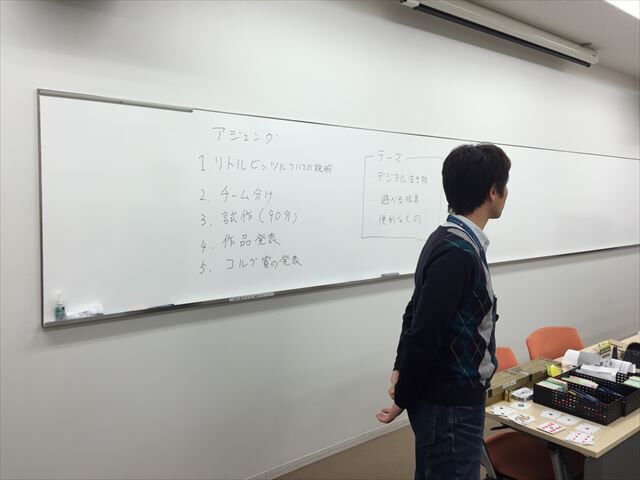 アジェンダ
1. リトルビッツについての説明
2. チーム分け
3. 試作(90分)
4. 作品発表
5. コルグ賞の発表
テーマ
・デジタル生き物
・遊べる
・便利なもの